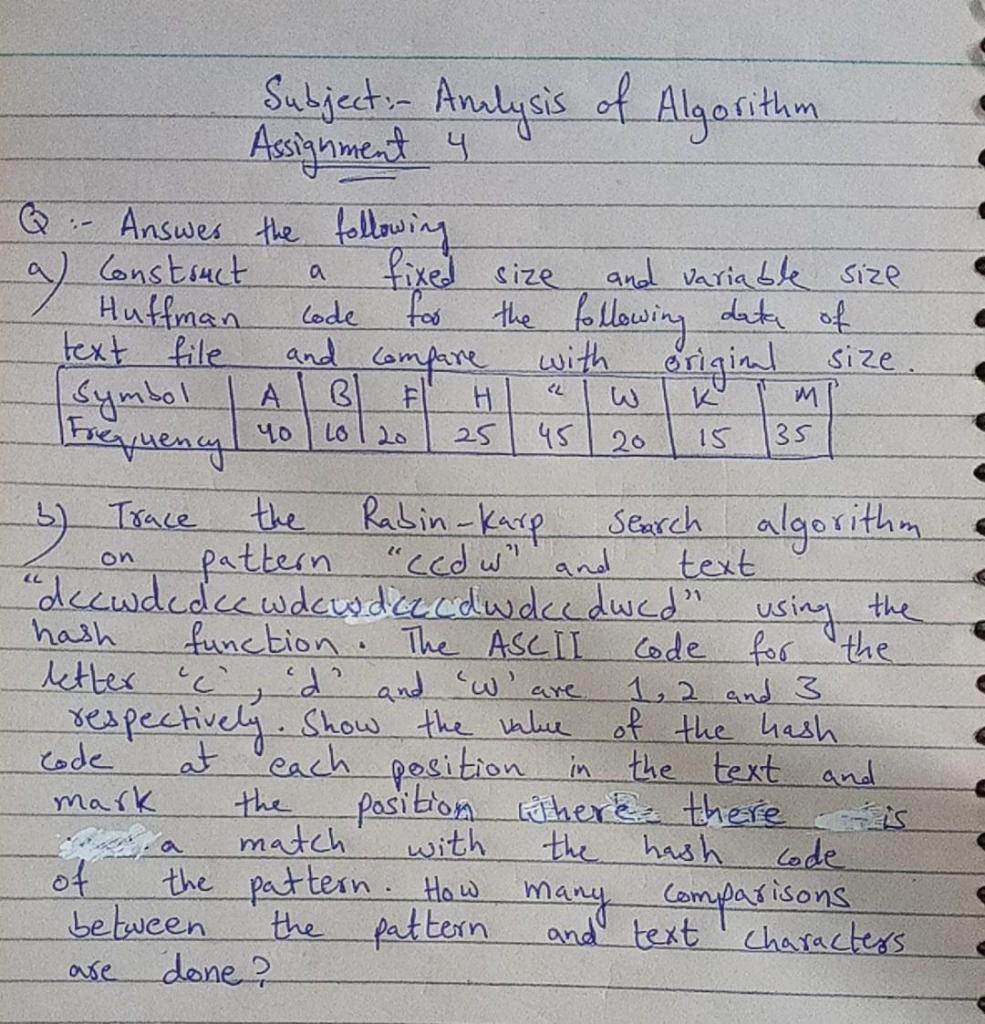 Subject:- Analysis of Algorithm
Assignment 4
Q :- Answer the following
a) Construct a fixed size and variable size
Huffman code for the following data of
text file and compare with original size.
Symbol A B F H “ W K M
Frequency 40 10 20 25 45 20 15 35
b) Trace the Rabin-Karp search algorithm
on pattern "ccdw" and text
"dccwdcdccwdcwdcccdwdccdwcd" using the
hash function. The ASCII code for the
letter 'c', 'd' and 'w' are 1, 2 and 3
respectively. Show the value of the hash
code at each position in the text and
mark the position where there is
a match with the hash code
of the pattern. How many comparisons
between the pattern and text characters
are done?